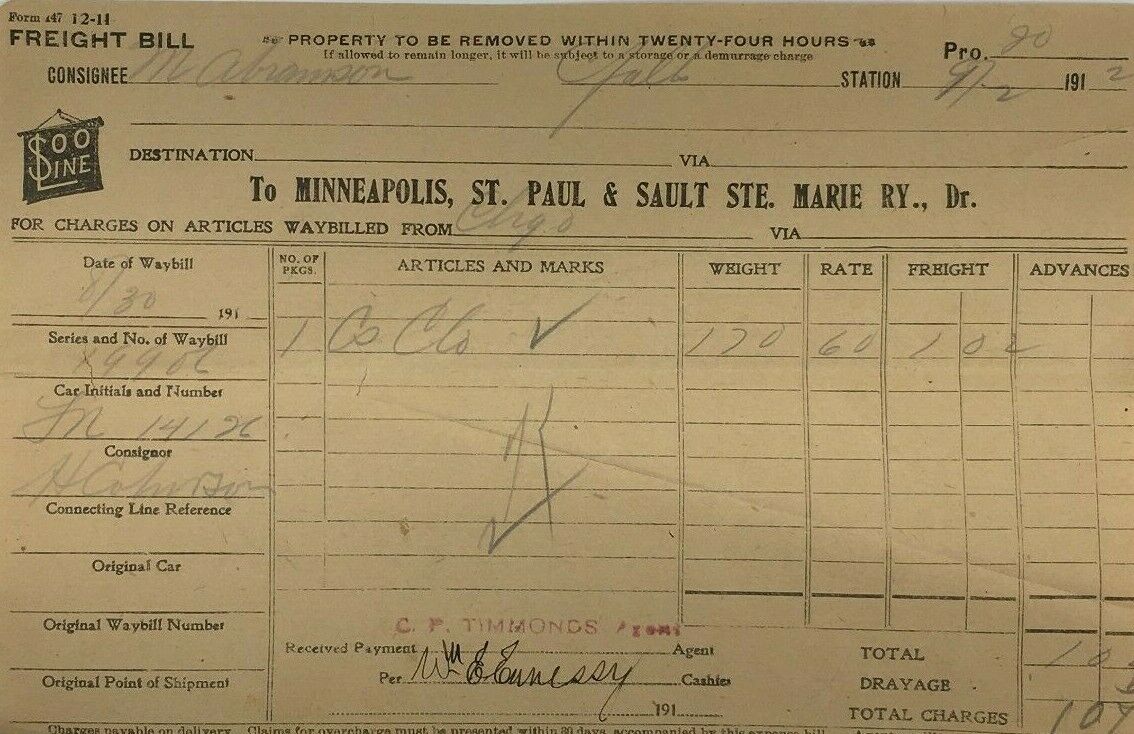 Form 147 12-11
FREIGHT BILL
PROPERTY TO BE REMOVED WITHIN TWENTY-FOUR HOURS
If allowed to remain longer, it will be subject to a storage or a demurrage charge
Pro. 20
CONSIGNEE M Abramson STATION 9/2 191 2
SOO LINE
DESTINATION VIA
To MINNEAPOLIS, ST. PAUL & SAULT STE. MARIE RY., Dr.
FOR CHARGES ON ARTICLES WAYBILLED FROM Chgo VIA
Date of Waybill NO. OF PKGS. ARTICLES AND MARKS WEIGHT RATE FREIGHT ADVANCES
8/30 191
Series and No. of Waybill 1 Cs Clo 170 60 1 02
Car Initials and Number
14126
Consignor
Connecting Line Reference
Original Car
Original Waybill Number
C. F. TIMMONDS Agent
Received Payment Agent TOTAL
Original Point of Shipment
Per Cashier DRAYAGE
191 TOTAL CHARGES
Charges payable on delivery. Claims for overcharge must be presented within 30 days, accompanied by this expense bill.